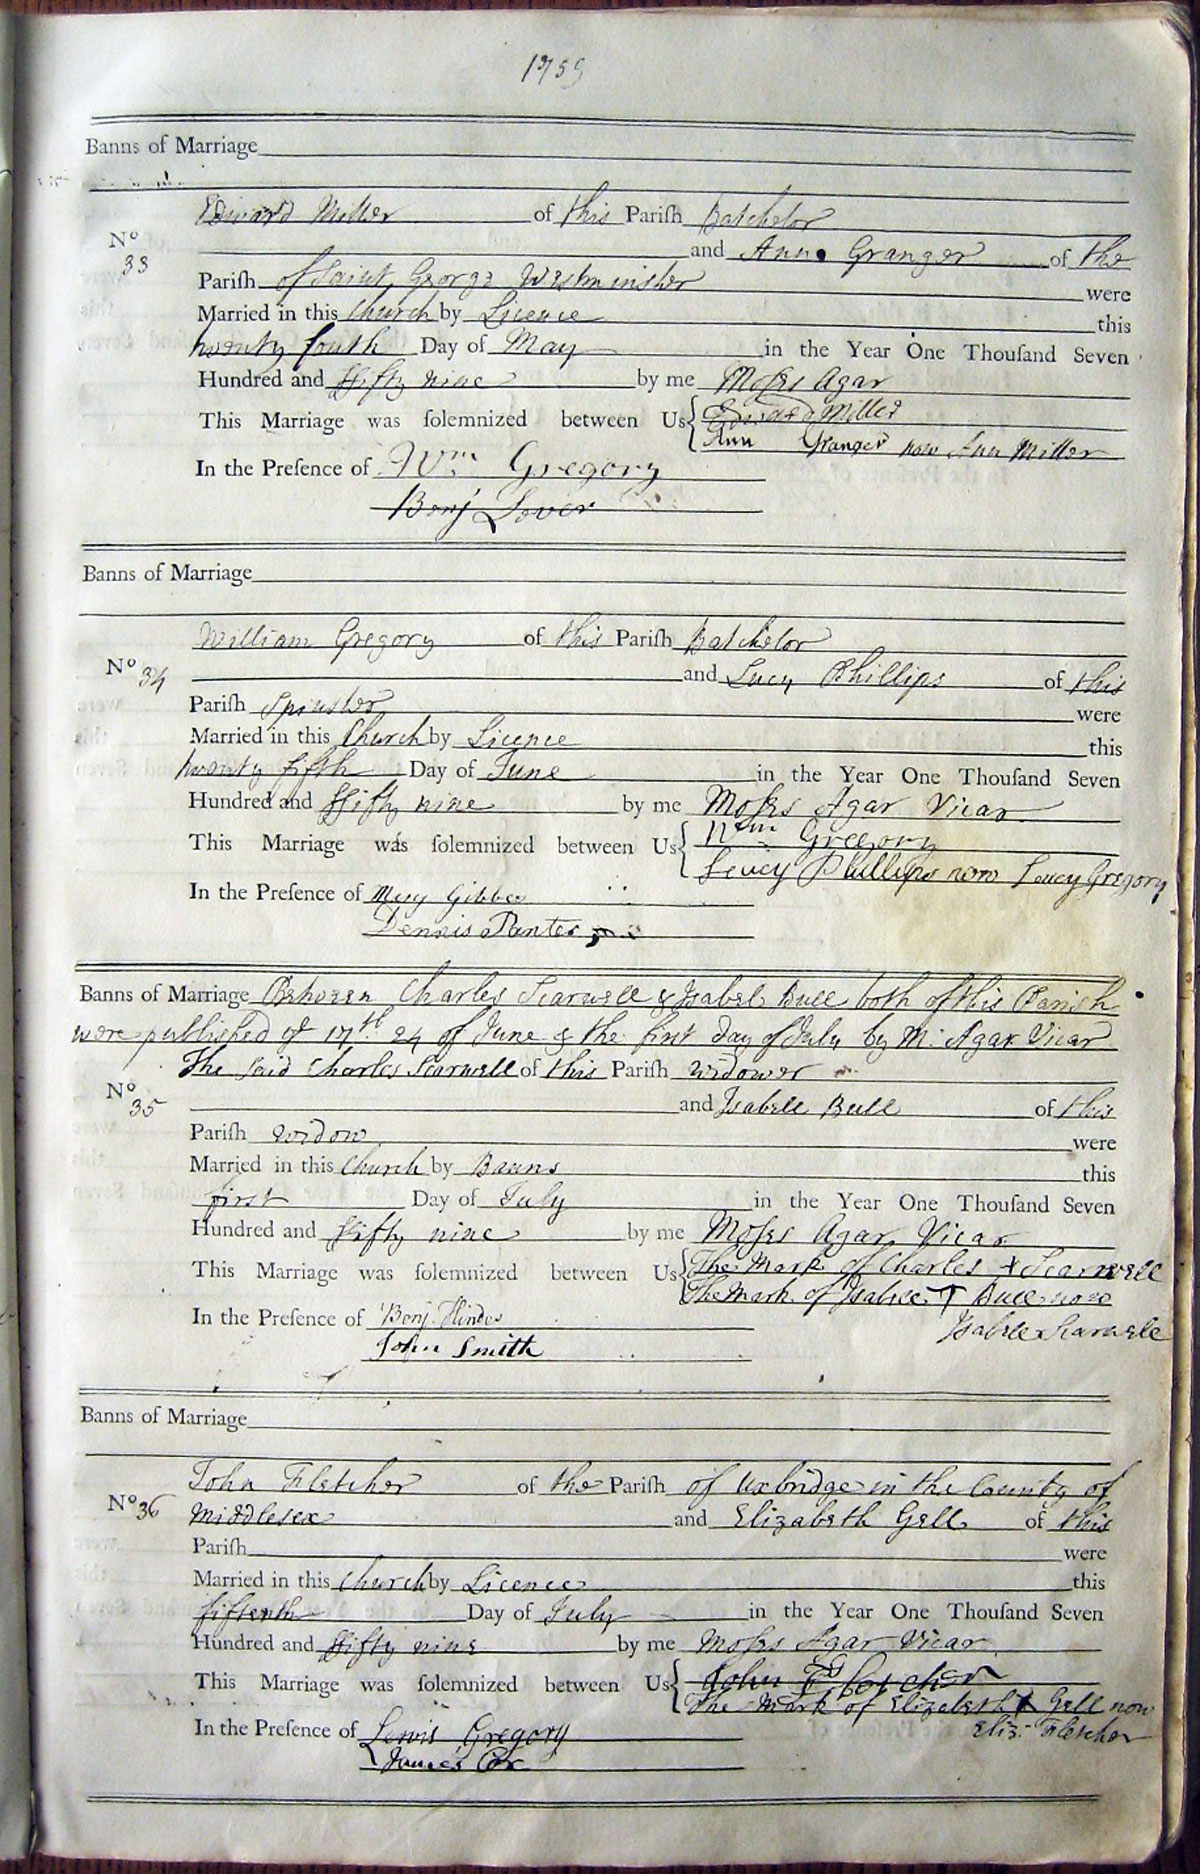 1759
Banns of Marriage
Edward Miller of this Pariſh Batchelor
No
33
and Ann Granger of the
Pariſh of Saint George Westminster were
Married in this Church by Licence this
twenty fourth Day of May in the Year One Thouſand Seven
Hundred and ffifty nine by me Moſes Agar
This Marriage was ſolemnized between Us Edward Miller
Ann Granger now Ann Miller
In the Preſence of Wm Gregory
Benj Lover
Banns of Marriage
William Gregory of this Pariſh Batchelor
No 34
and Lucy Phillips of this
Pariſh Spinster were
Married in this Church by Licence this
twenty fifth Day of June in the Year One Thouſand Seven
Hundred and ffifty nine by me Moſes Agar Vicar
This Marriage was ſolemnized between Us Wm Gregory
Leucy Phillips now Leucy Gregory
In the Preſence of Mary Gibbes
Dennis Panter
Banns of Marriage Between Charles Scarwell & Isabel Bull both of this Parish
were published ye 17th 24 of June & the first day of July by M: Agar Vicar
The said Charles Scarwell of this Pariſh widower
No 35
and Isabell Bull of this
Pariſh widow were
Married in this Church by Banns this
first Day of July in the Year One Thouſand Seven
Hundred and ffifty nine by me Moſes Agar Vicar
This Marriage was ſolemnized between Us The Mark of Charles + Scarwell
The Mark of Isabell Bull now
Isabell Scarwell
In the Preſence of Benj. Hindes
John Smith
Banns of Marriage
John Fletcher of the Pariſh of Uxbridge in the County of
No 36 Middlesex and Elizabeth Gell of this
Pariſh were
Married in this Church by Licence this
fifteenth Day of July in the Year One Thouſand Seven
Hundred and ffifty nine by me Moſes Agar Vicar
This Marriage was ſolemnized between Us John Fletcher
The Mark of Elizabeth Gell now
Eliz: Fletcher
In the Preſence of Lewis Gregory
James Cox